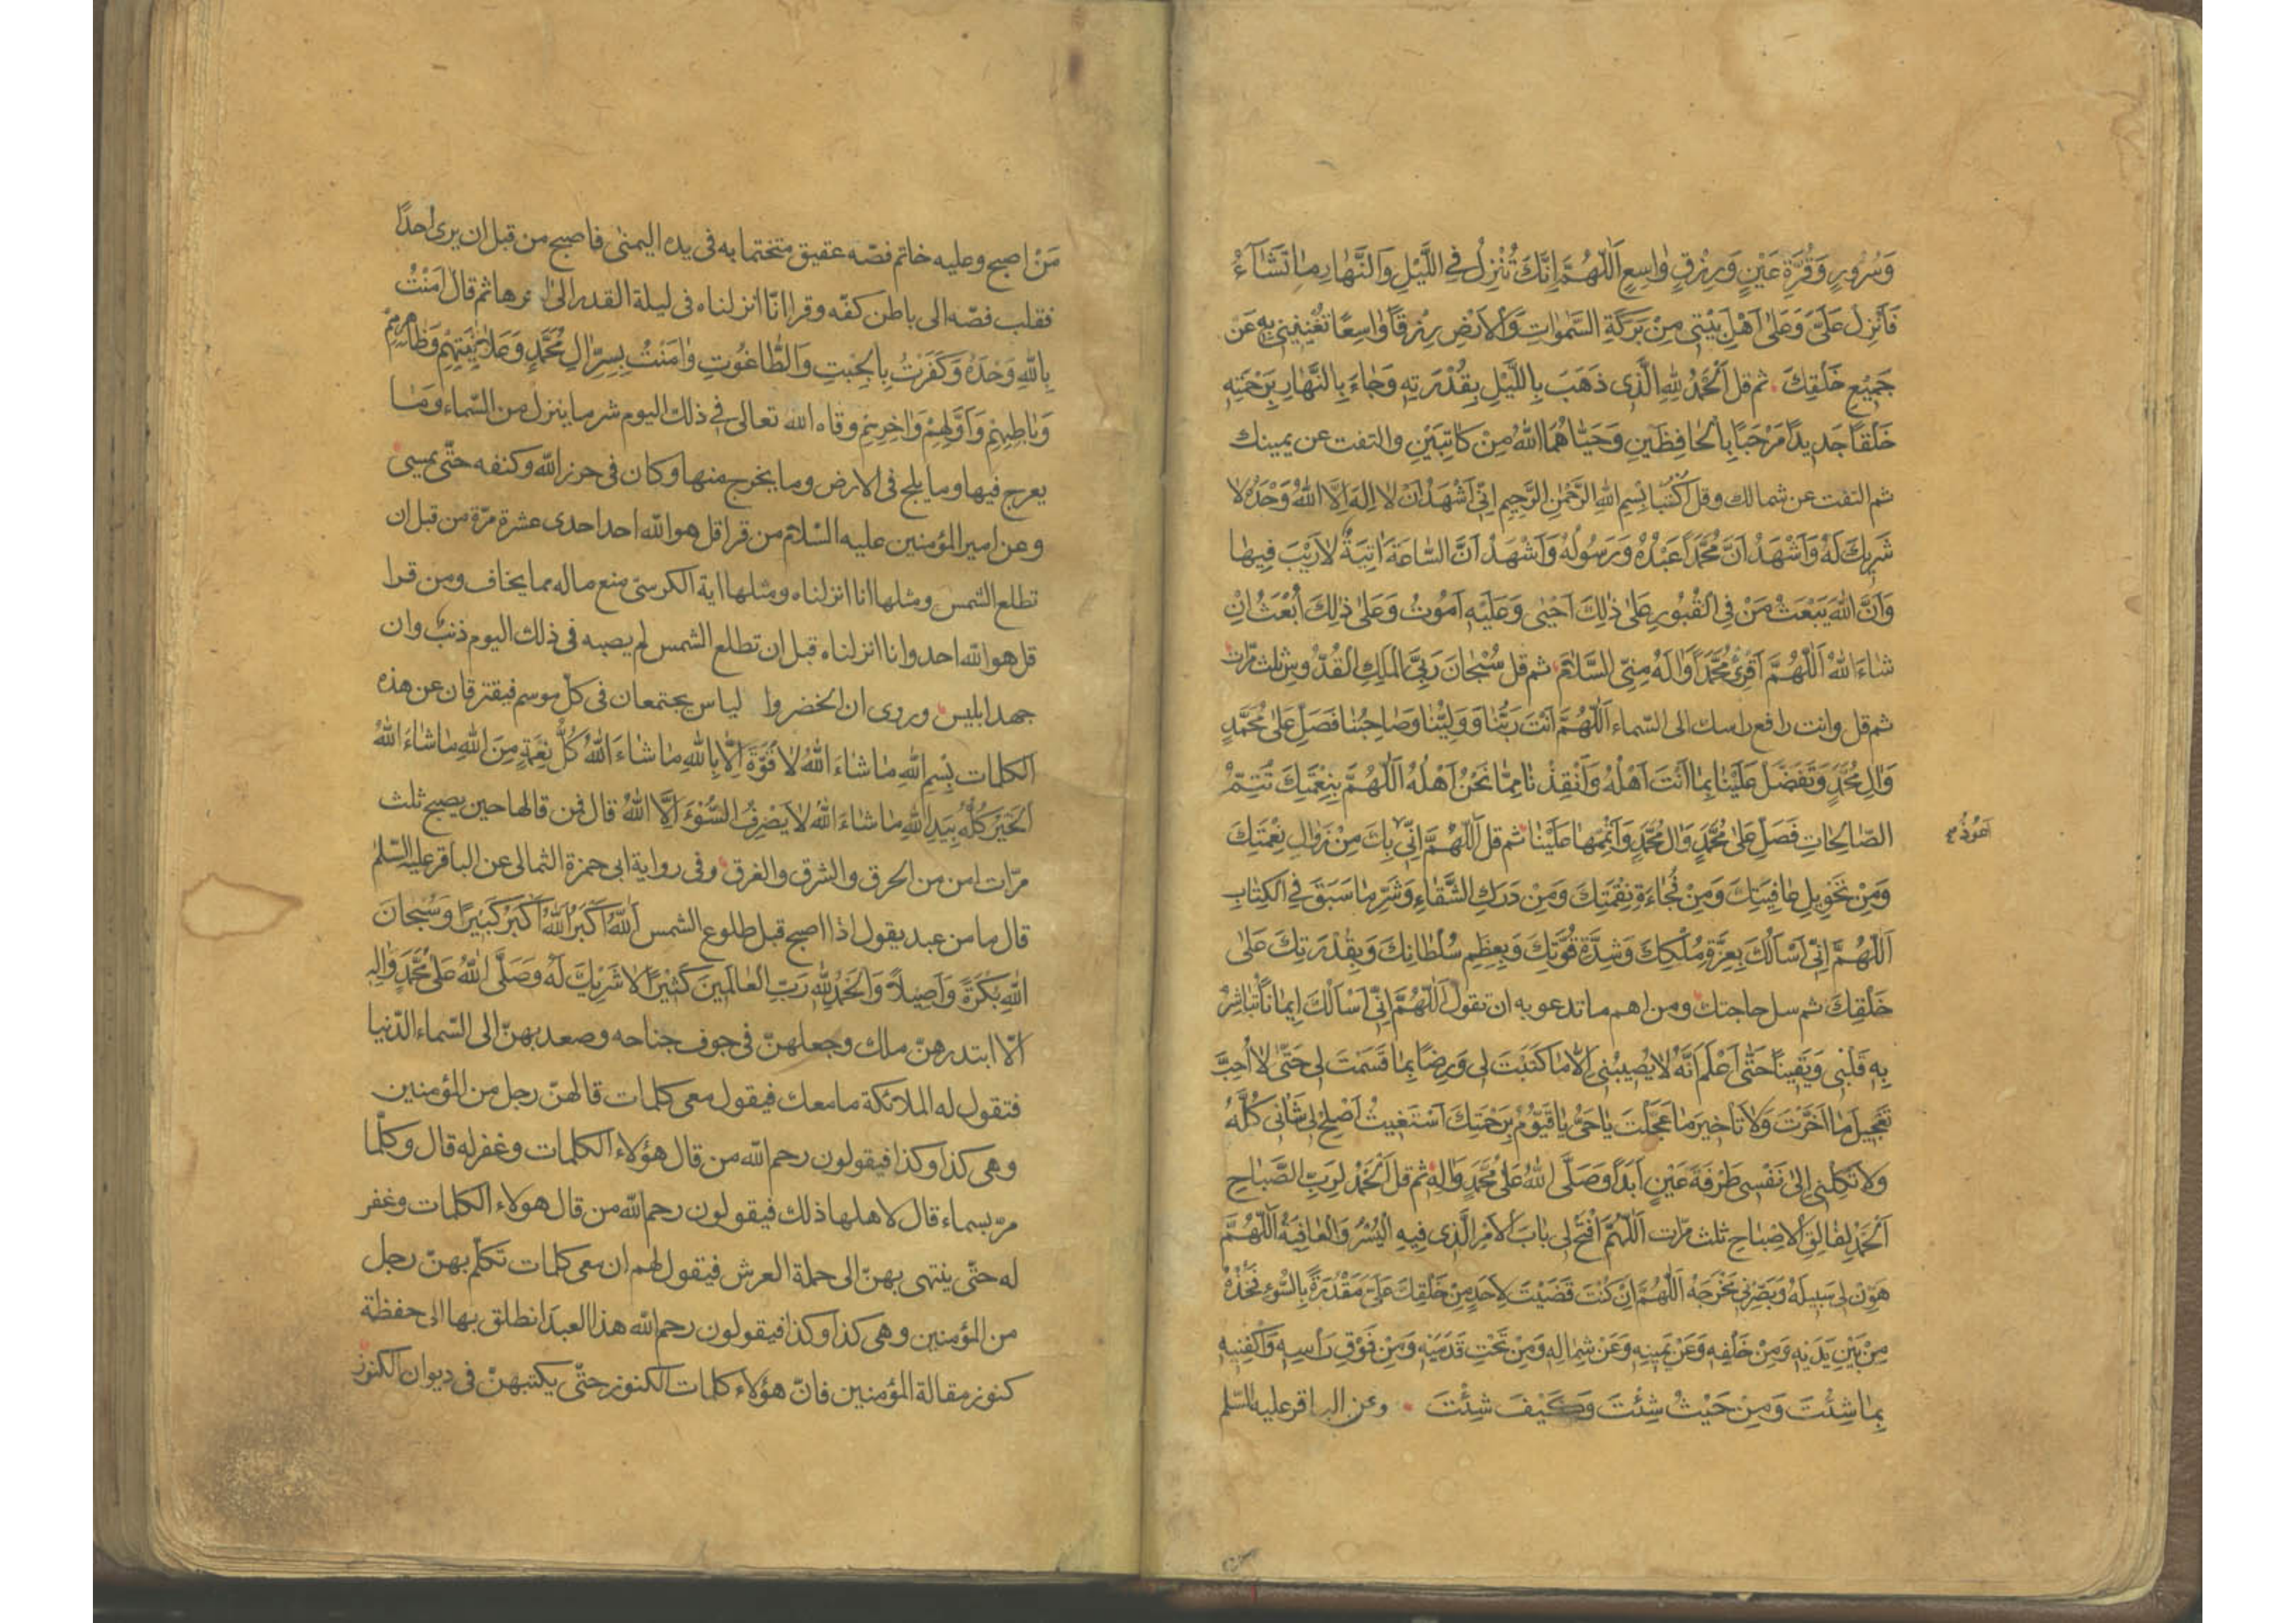 وَسُرُورٍ وَقُرَّةِ عَيْنٍ وَرِزْقٍ وٰاسِعٍ اَللّٰهُمَّ اِنَّكَ تُنْزِلُ فِي اللَّيْلِ وَالنَّهٰارِ مٰا تَشٰآءُ
فَاَنْزِلْ عَلَيَّ وَعَلىٰ اَهْلِ بَيْتِي مِنْ بَرَكَةِ السَّمٰوٰاتِ وَالْاَرْضِ رِزْقًا وٰاسِعًا تُغْنِينِي بِهِ عَنْ
جَمِيعِ خَلْقِكَ ثم قل اَلْحَمْدُ لِلّٰهِ الَّذِى ذَهَبَ بِاللَّيْلِ بِقُدْرَتِهِ وَجٰاءَ بِالنَّهٰارِ بِرَحْمَتِهِ
خَلْقًا جَدِيدًا مَرْحَبًا بِالْحٰافِظَيْنِ وَحَيّٰاكُمَا اللّٰهُ مِنْ كٰاتِبَيْنِ والتفت عن يمينك
ثم التفت عن شمالك وقل اُكْتُبٰا بِسْمِ اللّٰهِ الرَّحْمٰنِ الرَّحِيمِ اِنِّي اَشْهَدُ اَنْ لاٰ اِلٰهَ اِلَّا اللّٰهُ وَحْدَهُ لاٰ
شَرِيكَ لَهُ وَاَشْهَدُ اَنَّ مُحَمَّدًا عَبْدُهُ وَرَسُولُهُ وَاَشْهَدُ اَنَّ السّٰاعَةَ اٰتِيَةٌ لاٰ رَيْبَ فِيهٰا
وَاَنَّ اللّٰهَ يَبْعَثُ مَنْ فِي الْقُبُورِ عَلىٰ ذٰلِكَ اَحْيٰى وَعَلَيْهِ اَمُوتُ وَعَلىٰ ذٰلِكَ اُبْعَثُ اِنْ
شٰاءَ اللّٰهُ اَللّٰهُمَّ اَقْرِئْ مُحَمَّدًا وَاٰلَهُ مِنِّي السَّلاٰمَ ثم قل سُبْحٰانَ رَبِّيَ الْمَلِكِ الْقُدُّوسِ ثلث مرّات
ثم قل وانت رافع راسك الى السّماء اَللّٰهُمَّ اَنْتَ رَبُّنٰا وَوَلِيُّنٰا وَصٰاحِبُنٰا فَصَلِّ عَلىٰ مُحَمَّدٍ
وَاٰلِ مُحَمَّدٍ وَتَفَضَّلْ عَلَيْنٰا بِمٰا اَنْتَ اَهْلُهُ وَاَنْقِذْنٰا مِمّٰا نَحْنُ اَهْلُهُ اَللّٰهُمَّ بِنِعْمَتِكَ تَتِمُّ
الصّٰالِحٰاتُ فَصَلِّ عَلىٰ مُحَمَّدٍ وَاٰلِ مُحَمَّدٍ وَاَتِمَّهٰا عَلَيْنٰا ثم قل اَللّٰهُمَّ اِنِّي بِكَ مِنْ زَوٰالِ نِعْمَتِكَ
اَعُوذُ
وَمِنْ تَحْوِيلِ عٰافِيَتِكَ وَمِنْ فُجٰاءَةِ نِقْمَتِكَ وَمِنْ دَرَكِ الشَّقٰاءِ وَشَرِّ مٰا سَبَقَ فِي الْكِتٰابِ
اَللّٰهُمَّ اِنِّي اَسْأَلُكَ بِعِزَّةِ مُلْكِكَ وَشِدَّةِ قُوَّتِكَ وَبِعِظَمِ سُلْطٰانِكَ وَبِقُدْرَتِكَ عَلىٰ
خَلْقِكَ ثم سل حاجتك ومن اهم ما تدعو به ان تقول اَللّٰهُمَّ اِنِّي اَسْأَلُكَ اِيمٰانًا تُبٰاشِرُ
بِهِ قَلْبِي وَيَقِينًا حَتّٰى اَعْلَمَ اَنَّهُ لاٰ يُصِيبُنِي اِلاّٰ مٰا كَتَبْتَ لِي وَرِضًا بِمٰا قَسَمْتَ لِي حَتّٰى لاٰ اُحِبَّ
تَعْجِيلَ مٰا اَخَّرْتَ وَلاٰ تَأْخِيرَ مٰا عَجَّلْتَ يٰا حَيُّ يٰا قَيُّومُ بِرَحْمَتِكَ اَسْتَغِيثُ اَصْلِحْ لِي شَأْنِي كُلَّهُ
وَلاٰ تَكِلْنِي اِلىٰ نَفْسِي طَرْفَةَ عَيْنٍ اَبَدًا وَصَلَّى اللّٰهُ عَلىٰ مُحَمَّدٍ وَاٰلِهِ ثم قل اَلْحَمْدُ لِرَبِّ الصَّبٰاحِ
اَلْحَمْدُ لِفٰالِقِ الْاِصْبٰاحِ ثلث مرّات اَللّٰهُمَّ افْتَحْ لِي بٰابَ الْاَمْرِ الَّذِي فِيهِ الْيُسْرُ وَالْعٰافِيَةُ اَللّٰهُمَّ
هَوِّنْ لِي سَبِيلَهُ وَبَصِّرْنِي مَخْرَجَهُ اَللّٰهُمَّ اِنْ كُنْتَ قَضَيْتَ لِاَحَدٍ مِنْ خَلْقِكَ عَلَيَّ مَقْدُرَةً بِالسُّوءِ فَخُذْهُ
مِنْ بَيْنِ يَدَيْهِ وَمِنْ خَلْفِهِ وَعَنْ يَمِينِهِ وَعَنْ شِمٰالِهِ وَمِنْ تَحْتِ قَدَمَيْهِ وَمِنْ فَوْقِ رَأْسِهِ وَاكْفِنِيهِ
بِمٰا شِئْتَ وَمِنْ حَيْثُ شِئْتَ وَكَيْفَ شِئْتَ وعن الباقر عليه السّلم
مَنْ اصبح وعليه خاتم فصّه عقيق متختما به فى يده اليمنٰى فاصبح من قبل ان يرى احدًا
فقلب فصّه الى باطن كفّه وقرا انّا انزلناه فى ليلة القدر الىٰ ثم قال اٰمَنْتُ
بِاللّٰهِ وَحْدَهُ وَكَفَرْتُ بِالْجِبْتِ وَالطّٰاغُوتِ وَاٰمَنْتُ بِسِرِّ اٰلِ مُحَمَّدٍ وَعَلاٰنِيَتِهِمْ وَظٰاهِرِهِمْ
وَبٰاطِنِهِمْ وَاَوَّلِهِمْ وَاٰخِرِهِمْ وقاه الله تعالى فى ذلك اليوم شر ما ينزل من السّماء وما
يعرج فيها وما يلج فى الارض وما يخرج منها وكان فى حرز اللّه وكنفه حتّى يمسى
وعن امير المؤمنين عليه السّلام من قرا قل هو اللّه احد احدى عشرة مرّة من قبل ان
تطلع الشمس ومثلها انا انزلناه ومثلها اية الكرسىّ منع ماله مما يخاف ومن قرا
قل هو اللّه احد وانا انزلناه قبل ان تطلع الشمس لم يصبه فى ذلك اليوم ذنب وان
جهد ابليس وروى ان الخضر وا لياس يجتمعان فى كلّ موسم فيفترقان عن هذه
الكلمات بِسْمِ اللّٰهِ مٰا شٰاءَ اللّٰهُ لاٰ قُوَّةَ اِلاّٰ بِاللّٰهِ مٰا شٰاءَ اللّٰهُ كُلُّ نِعْمَةٍ مِنَ اللّٰهِ مٰا شٰاءَ اللّٰهُ
اَلْخَيْرُ كُلُّهُ بِيَدِ اللّٰهِ مٰا شٰاءَ اللّٰهُ لاٰ يَصْرِفُ السُّوءَ اِلَّا اللّٰهُ قال فمن قالها حين يصبح ثلث
مرّات امن من الحرق والشرق والغرق وفى رواية ابى حمزة الثمالى عن الباقر عليه السّلم
قال ما من عبد يقول اذا اصبح قبل طلوع الشمس اَللّٰهُ اَكْبَرُ اَللّٰهُ اَكْبَرُ كَبِيرًا وَسُبْحٰانَ
اللّٰهِ بُكْرَةً وَاَصِيلاً وَالْحَمْدُ لِلّٰهِ رَبِّ الْعٰالَمِينَ كَثِيرًا لاٰ شَرِيكَ لَهُ وَصَلَّى اللّٰهُ عَلىٰ مُحَمَّدٍ وَاٰلِهِ
الّا ابتدرهنّ ملك وجعلهنّ فى جوف جناحه وصعد بهنّ الى السّماء الدّنيا
فتقول له الملائكة ما معك فيقول معى كلمات قالهنّ رجل من المؤمنين
وهى كذا وكذا فيقولون رحم اللّه من قال هؤلاء الكلمات وغفر له قال وكلّما
مرّ بسماء قال لاهلها ذلك فيقولون رحم اللّه من قال هولاء الكلمات وغفر
له حتّى ينتهى بهنّ الى حملة العرش فيقول لهم ان معى كلمات تكلّم بهنّ رجل
من المؤمنين وهى كذا وكذا فيقولون رحم اللّه هذا العبد انطلق بها الى حفظة
كنوز مقالة المؤمنين فانّ هؤلاء كلمات الكنوز حتّى يكتبهنّ فى ديوان الكنوز